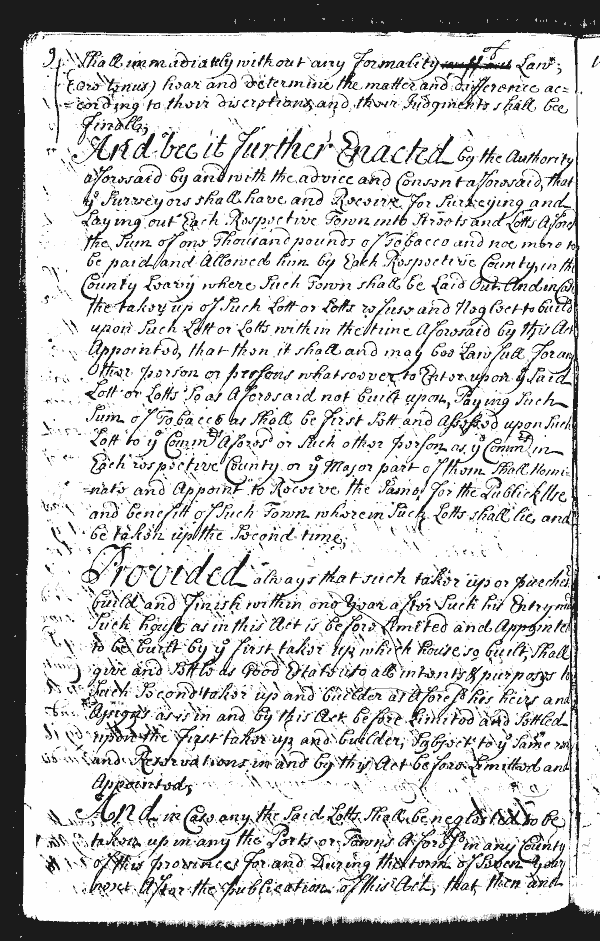 9
Shall immediately without any formality of Law,
(ore tenus) hear and determine the matter and difference ac=
=cording to their discretions, and their Judgments shall bee
finall;
And bee it further Enacted by the Authority
aforesaid by and with the advice and Consent aforesaid, that
ye Surveyors shall have and Receive for Surveying and
Laying out Each Respective Town into Streets and Lotts Afores
the Sum of one Thousand pounds of Tobacco and noe more to
be paid and Allowed him by Each Respective County, in the
County Leavy where Such Town shall be Laid Out. And in Case
the taker up of Such Lott or Lotts refuse and Neglect to build
upon Such Lott or Lotts within the time Aforesaid by this Act
Appointed, that then it shall and may bee Lawfull for any
Other person or persons whatsoever to Enter upon ye Said
Lott or Lotts So as Aforesaid not built upon, Paying Such
Sum of Tobacco as Shall be first Sett and Assessed upon Such
Lott to ye Comrs Aforesd or Such other person as ye Comrs in
Each respective County or ye Major part of them Shall Nomi=
=nate and Appoint to Receive the Same, for the Publick Use
and benefitt of Such Town wherein Such Lotts shall lie, and
be taken up the Second time,
Provided always that such taker up or purcher
build and finish within one Year after Such his Entry made
Such house as in this Act is before Limited and Appointed
to be built by ye first taker up, which house so built, Shall
give and Settle as Good Estate to all intents & purposes to
Such Second taker up and builder as Aforesd his heirs and
Assigns as is in and by this Act before Limited and Settled
upon the first taker up and builder, Subject to ye Same
and Reservations in and by this Act before Limitted and
Appointed,
And in Case any the Said Lotts Shall be neglected to be
taken up in any the Ports or Towns Aforesd in any County
of this Province for and During the term of Seven Years
next After the publication of this Act, that then and